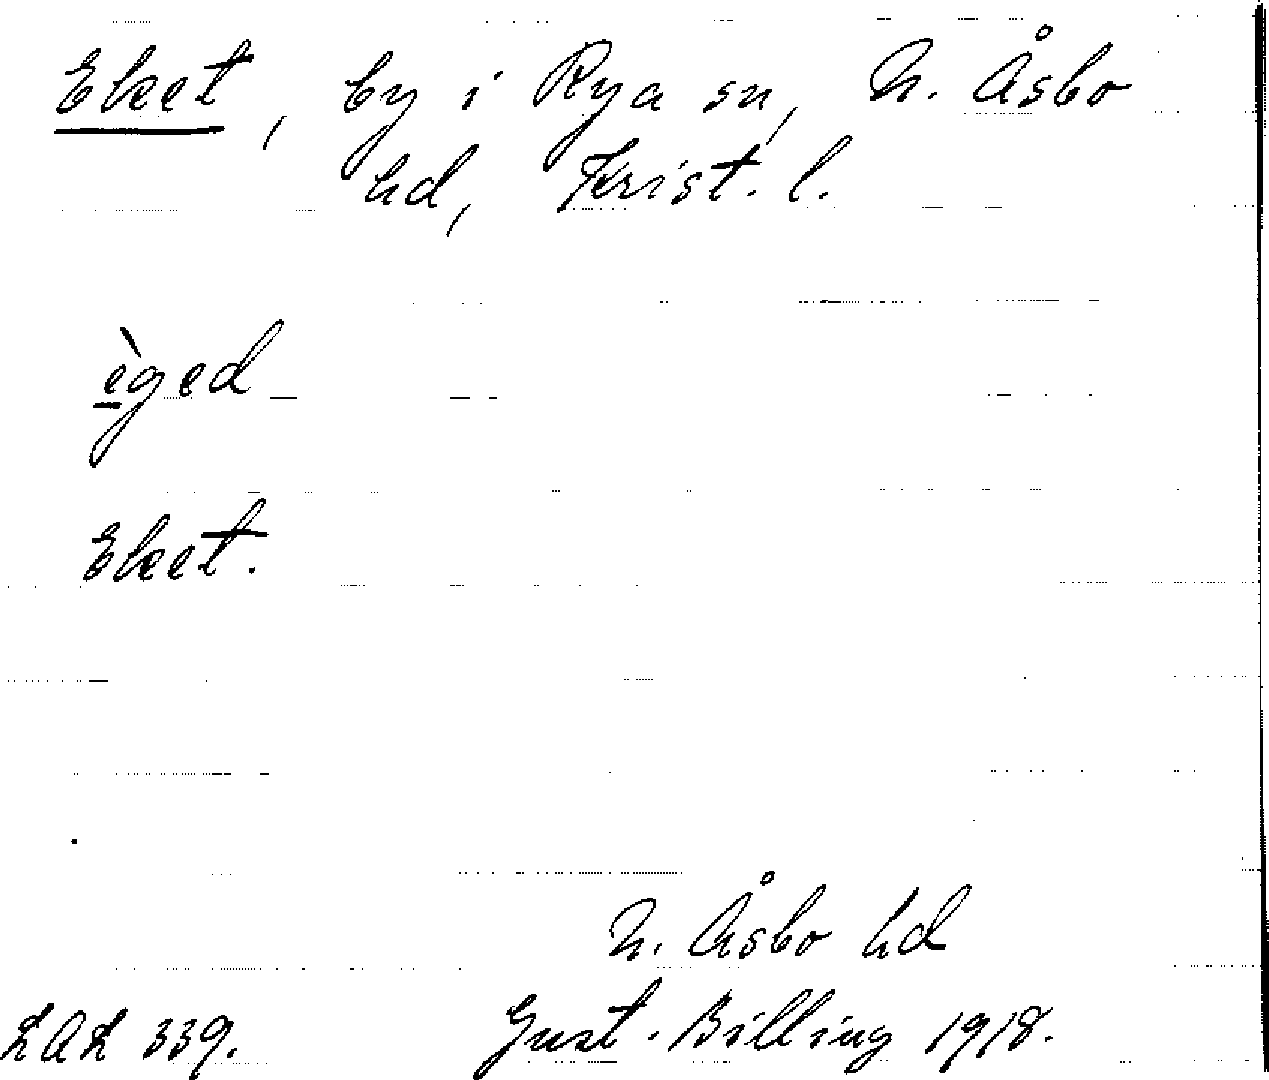 Eket, by i Rya sn, N. Åsbo
hd, Krist. l.
èged
Eket.
N. Åsbo hd
LAL 339. Gust. Billing 1918.